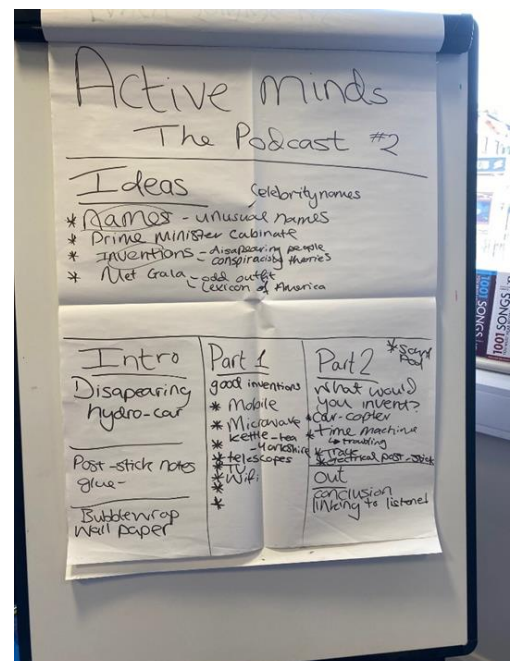 Active minds
The Podcast #2
Ideas
Celebrity names
* Names - unusual names
* Prime Minister Cabinate
* Inventions - disapearing people
conspiracisty therries
* Met Gala - odd outfit
Lexicon of America
Intro
Disapearing
hydro-car
Post-stick notes
glue-
Bubblewrap
Wall paper
Part 1
good inventions
* Mobile
* Microwave
* kettle-tea
-Yorkshire
* telescopes
* TV
* Wifi
*
*
Part 2
What would
you invent?
* Car-copter
* time machine
troubling
out
conclusion
linking to listened
1001 SONGS
1001 SONGS